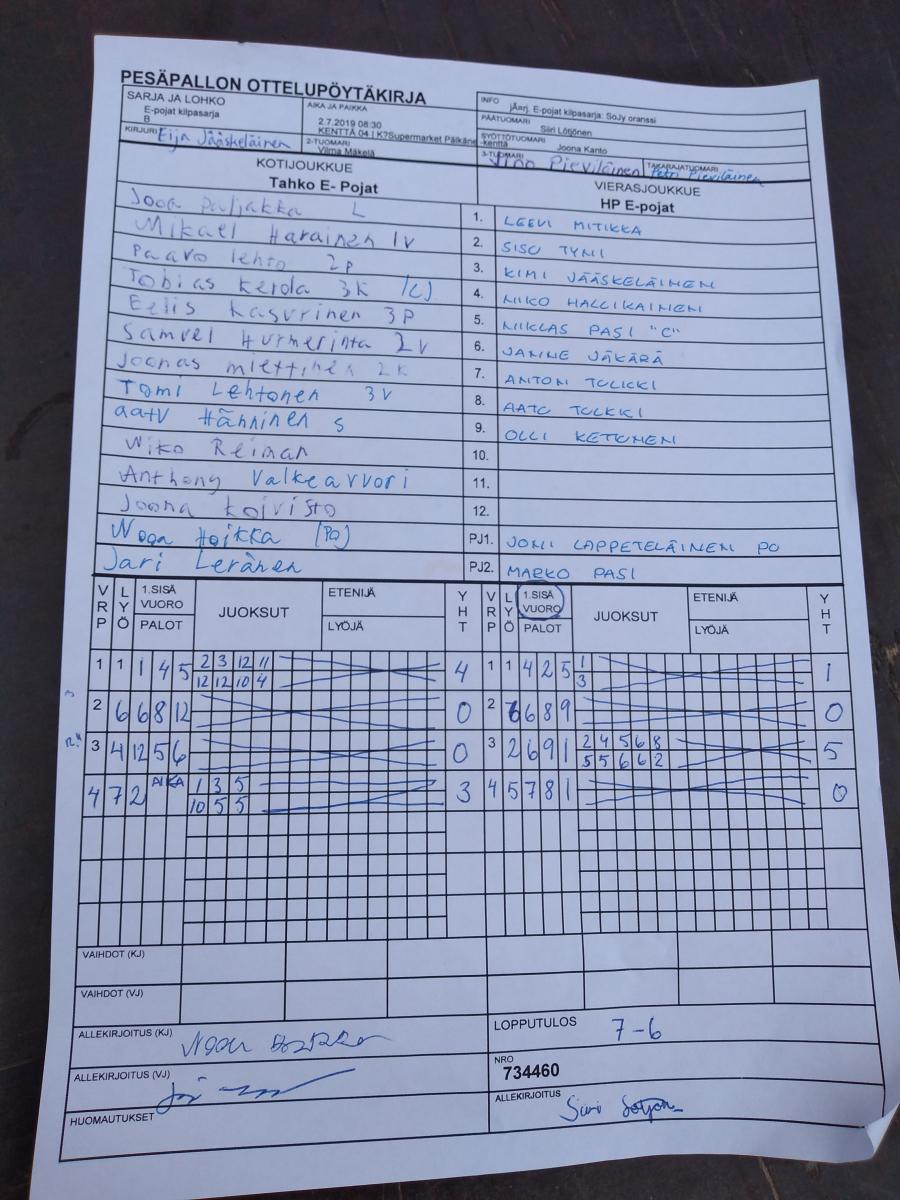 PESÄPALLON OTTELUPÖYTÄKIRJA
SARJA JA LOHKO
E-pojat kilpasarja
B
AIKA JA PAIKKA
2.7.2019 08:30
KENTTÄ 04 | K?Supermarket Pälkäne -kenttä
INFO
jÄrrj. E-pojat kilpasarja: SoJy oranssi
PÄÄTUOMARI
Siiri Lötjönen
KIRJURI
Eija Jääskeläinen
2-TUOMARI
Vilma Mäkelä
SYÖTTÖTUOMARI
Joona Kanto
3-TUOMARI
Pieviläinen
TAKARAJATUOMARI
Petri Pieviläinen
KOTIJOUKKUE
Tahko E- Pojat
VIERASJOUKKUE
HP E-pojat
Joona Paljakka L
1. LEEVI MITIKKA
Mikael Harainen 1v
2. SISU TYNI
Paavo lehto 2p
3. KIMI JÄÄSKELÄINEN
Tobias kerola 3K (C)
4. NIKO HALLIKAINEN
Eelis kasurinen 3P
5. NIKLAS PASI "C"
Samuel Hurmerinta 2v
6. JANNE JÄKÄRÄ
Joonas miettinen 2k
7. ANTON TULKKI
Tomi Lehtonen 3v
8. AATU TULKKI
aatu Hänninen s
9. OLLI KETONEN
Niko Reiman
10.
Anthony Valkeavuori
11.
Joona koivisto
12.
Nooa Hoikka (PO)
PJ1. JONI LAPPETELÄINEN PO
Jari Leränen
PJ2. MARKO PASI
VRP LYÖ 1.SISÄ VUORO PALOT JUOKSUT ETENIJÄ LYÖJÄ YHT VRP LYÖ 1.SISÄ VUORO PALOT JUOKSUT ETENIJÄ LYÖJÄ YHT
1 1 1 4 5 2 3 12 11 4 1 1 4 2 5 1 1
12 12 10 4 3
2 6 6 8 12 0 2 6 6 8 9 0
3 4 12 5 6 0 3 2 6 9 1 2 4 5 6 8 5
5 5 6 6 2
4 7 2 AIKA 1 3 5 3 4 5 7 8 1 0
10 5 5
VAIHDOT (KJ)
VAIHDOT (VJ)
ALLEKIRJOITUS (KJ)
LOPPUTULOS 7-6
ALLEKIRJOITUS (VJ)
NRO
734460
HUOMAUTUKSET
ALLEKIRJOITUS
Siiri